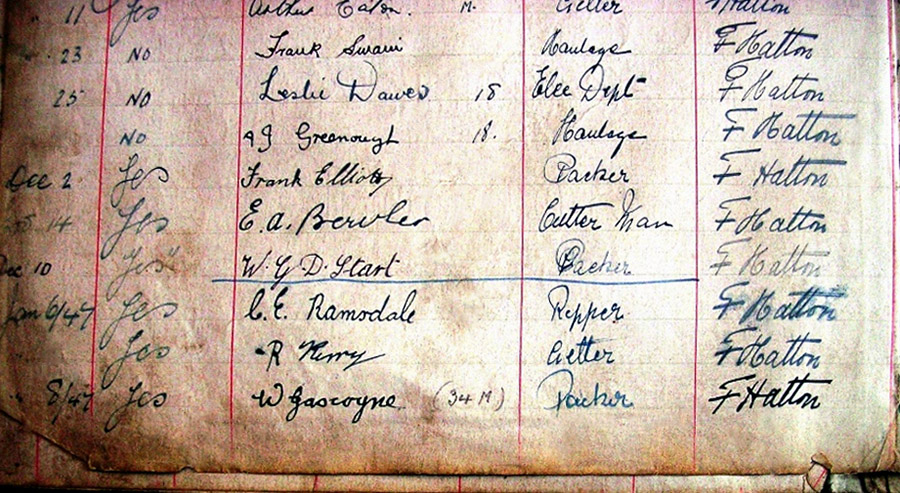 11 Yes Arthur Eaton. M. Getter F Hatton
" 23 NO Frank Swain Haulage F Hatton
25 NO Leslie Dawes 18 Elec Dept F Hatton
NO A J Greenough 18. Haulage F Hatton
Dec 2 Yes Frank Elliott Packer F Hatton
14 Yes E. A. Cutter Man F Hatton
Dec 10 Yes W. G. D. Start Packer F Hatton
Jan 6/47 Yes C. E. Ramsdale Ripper F Hatton
Yes R Getter F Hatton
" 8/47 Yes W Gascoyne (34 M) Packer F Hatton